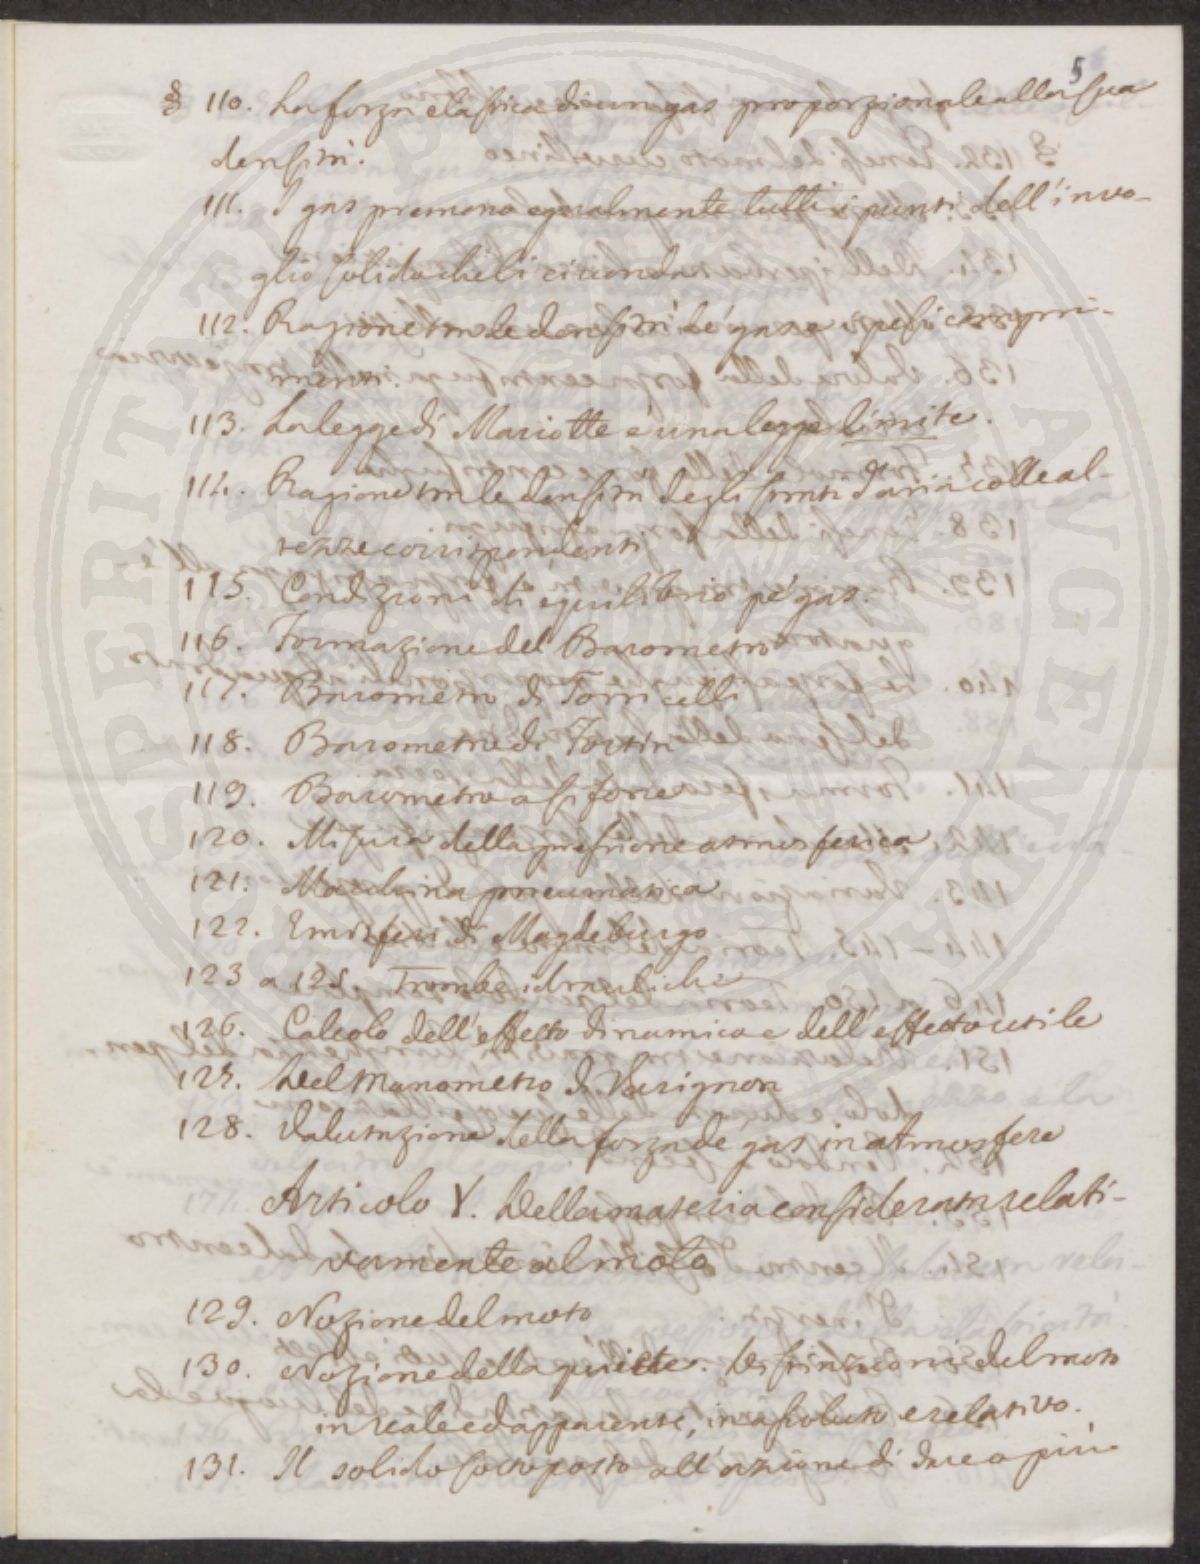 5
§ 110. La forza elastica di un gas proporzionale alla sua
densità.
111. I gas premono egualmente tutti i punti dell'invo-
glio solido che li circonda
112. Ragione tra le densità de' gas e i pesi compri-
menti.
113. La legge di Mariotte è una legge limite.
114. Ragione tra le densità degli strati d'aria colle al-
tezze corrispondenti
115. Condizioni di equilibrio pe' gas.
116. Formazione del Barometro
117. Barometro di Torricelli
118. Barometro di Fortin
119. Barometro a sifone
120. Misura della pressione atmosferica
121. Macchina pneumatica
122. Emisferi di Magdeburgo
123 a 125. Trombe idrauliche
126. Calcolo dell'effetto dinamico e dell'effetto utile
127. Del Manometro di Varignon
128. Valutazione della forza de' gas in atmosfere
Articolo V. Della materia considerata relati-
vamente al moto
129. Nozione del moto
130. Nozione della quiete. Distinzioni del moto
in reale ed apparente, in assoluto e relativo.
131. Il solido sottoposto all'azione di due o più
SPERITNE PVBLICATI AVGENDA